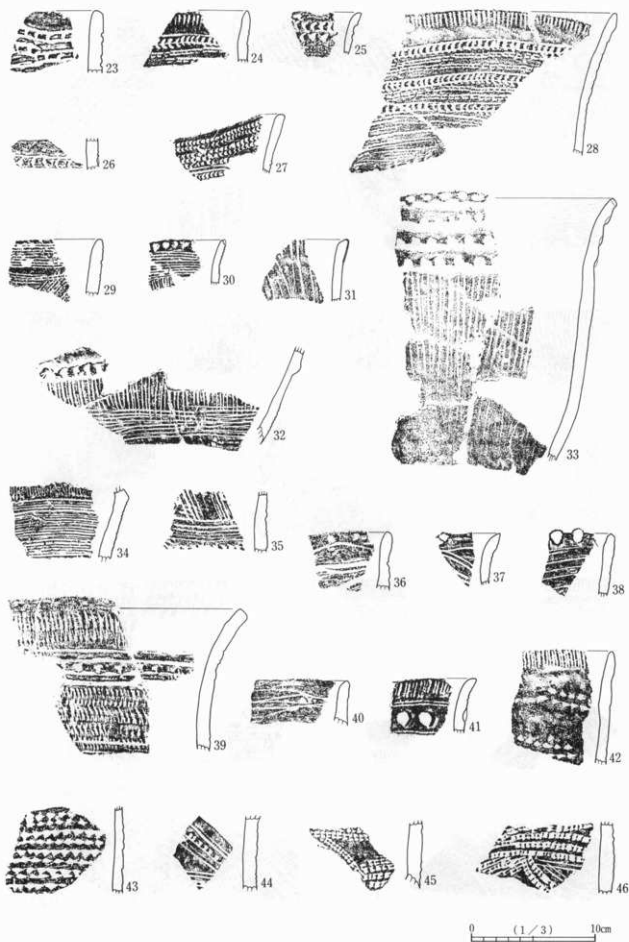 23 24 25 28
26 27
29 30 31 33
32
34 35 36 37 38
39 40 41 42
43 44 45 46
0 (1/3) 10cm